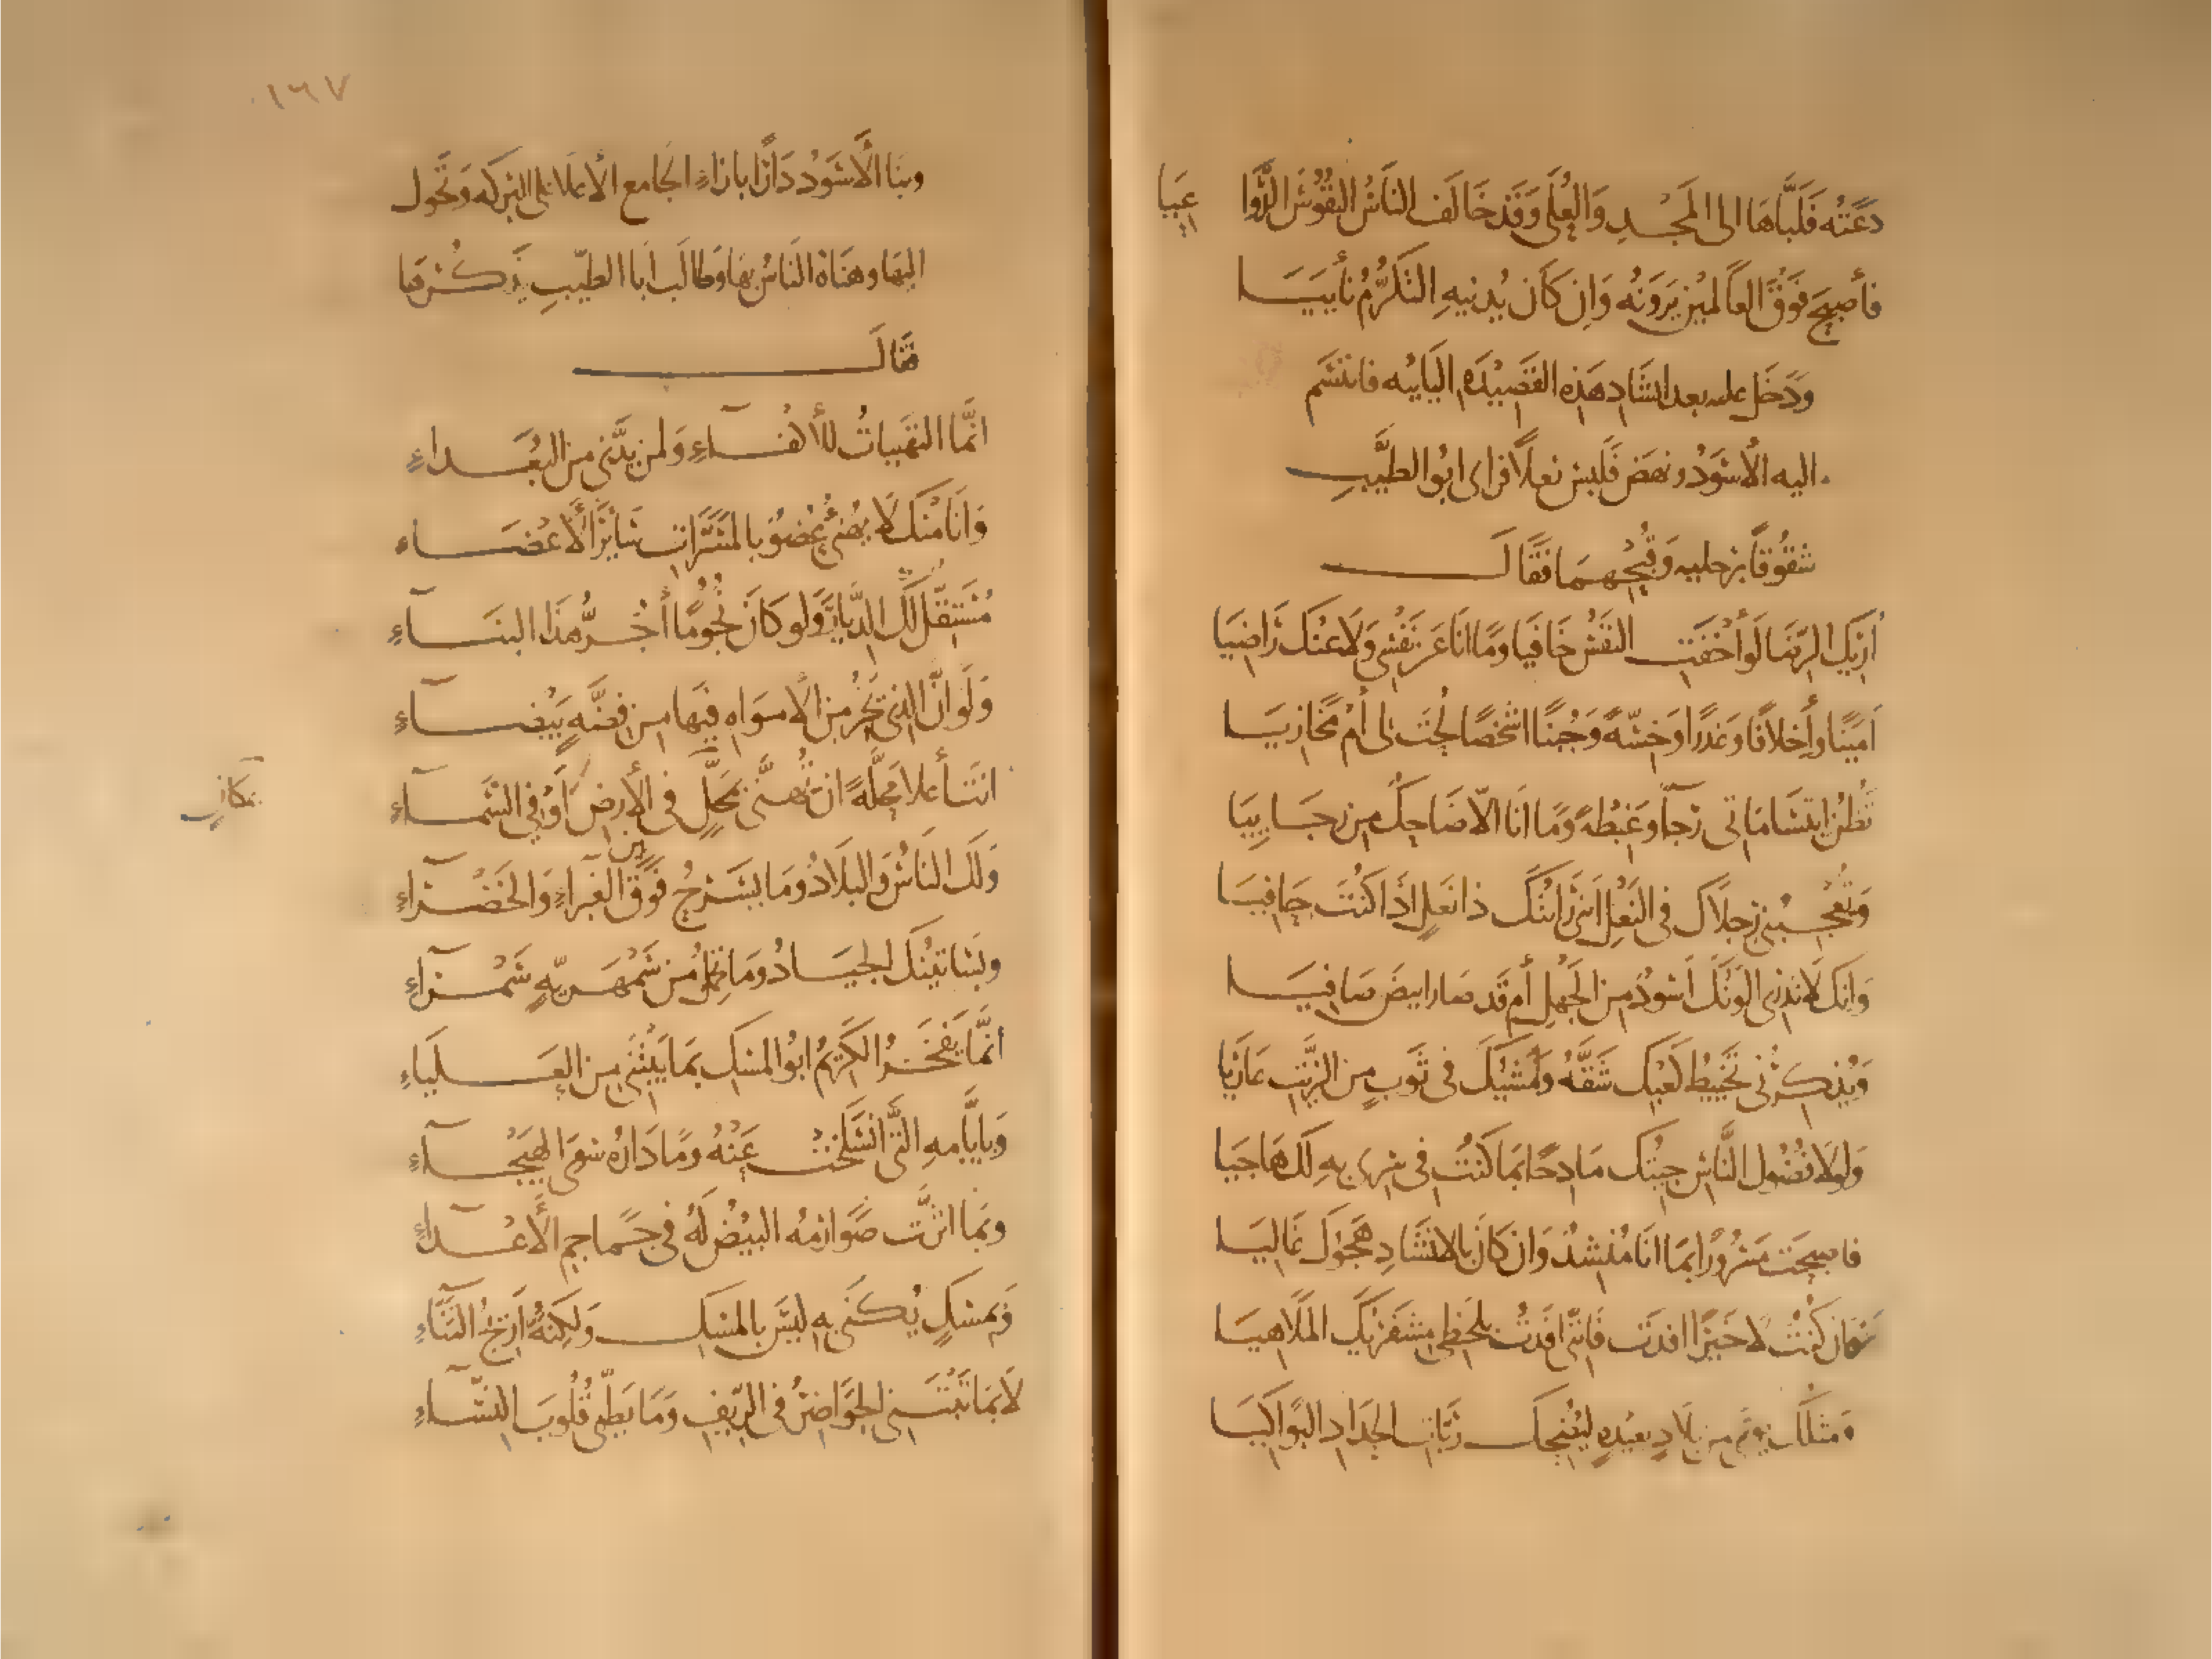 دَعَتْه فَلَبَّاهَا الى المَجْدِ وَالعُلَى وَقَد خَالَفَ النَاسُ النُفُوسَ الدَّوا عِيَا
فأصبحَ فَوْقَ العَالمِينَ يَرَوْنَه وَاِن كَانَ يُدنيهِ التَكَرُّمُ نأييَا
ودَخَل عليه بعد انشَادِ هَذِه القَصِيْدَهِ اليَاييه فابتسَم
اليه الأسْوَدُ ونهَض فَلَبس نعلاً فراى ابُو الطيَّبِ
شقُوقاً برجليه وَقُبْحهمَا فقَالَ
أُرِيكَ الرِضَا لَو أَخْفَتِ النَفْسُ خَافيَا ومَا انَا عَن نَفْسى وَلَا عنْكَ رَاضِيَا
اَمَيْنًا وأَخلافًا وغَدرًا وَخِسّةً وَجُبنًا اشَخصًا لُحْتَ لى أمْ مخَازيَا
تَظُنُّ ابتسَامَاتى رَجآً وغِبْطةً ومَا انَا الّا ضَاحِكٌ مِن رجَايِيَا
وَتُعْجِبُنى رِجلَاكَ فى النَعْلِ انّنى رَايتُكَ ذا نَعلٍ اذَا كُنْتَ حَافِيَا
وَانكَ لا تَدْرى الَونُكَ اَسْوَدٌ مِن الجَهْلِ أم قَد صَار ابيضَ صَافِيَا
وَيُذكِرُنى تَخْيِيطُ كَعْبِكَ شَقَّهُ وَمَشْيَكَ فى ثَوبٍ مِن الزَّيْتِ عَارِيَا
وَلولَا فُضُول النَّاسِ جِيْتُكَ مَادِحًا بمَا كُنْتُ فى سِرى بهِ لَكَ هَاجِيَا
فاصبحَت مَسْرُورًا بمَا انَا مُنْشِدٌ وَان كَانَ بالانشَادِ هَجْوُكَ غَاليَا
فان كُنْتَ لا خَيْرًا افدتَ فَانّنى افَدتُ بلَحظى مِشفَرَيْكَ المَلاهيَا
ومثلُكَ يُوتَى من بِلَادٍ بعيْدةٍ ليُضحِكَ رَبَّاتِ الحِدَادِ البَوَاكِيَا
١٦٧
وبنَا الأَسْوَدُ دَارًا بازاءِ الجَامع الأعلا على البركه وَتَحَول
اليهَا وهنَاه النَاسُ بهَا وَطَالَب ابَا الطيّبِ بذكْرهَا
فقَالَ
انَّمَا التهَنِياتُ للأكْفَآءِ وَلمن يدَّنى مِن البُعَداءِ
وَانَا مِنْكَ لَا يُهنِّئُ عُضْوٌ بالمَسَرَّاتِ سَائِرَ الأعْضَاءِ
مُسْتَقلٌّ لَكَ الدِّيَارَ وَلو كَانَ نُجُومًا أجُرُّ هذَا البنَآءِ
وَلَوَ انَّ الذى يَخِرُّ مِن الأمْوَاهِ فيْهَا مِن فِضَّةٍ بَيْضَآءِ
انتَ أعلا مَحلَّةً ان تُهنَّى بمَحلٍّ فى الأرضِ اَوْ فى السَّمَآءِ
بمكانٍ
وَلَكَ النَاسُ وَالبلَادُ ومَا يسْرَحُ فَوقَ الغَبْرآءِ وَالخَضْرَآءِ
بين
وبسَاتينُكَ الجيَادُ ومَا تحْمِلُ مِن سَمْهَريّةٍ سَمْرَآءِ
انَّمَا يَفْخَرُ الكَرِيمُ ابُو المسْكِ بمَا يَبْتَنى مِن العَلْيَاءِ
وَبايَّامهِ التَّى انسَلَخَتْ عَنْهُ ومَا دَارُهُ سِوَى الهَيْجَآءِ
وبمَا اثرَّت صَوَارِمُه البيْضُ لَهُ فى جَمَاجِمِ الأعْدَآءِ
وَبمسْكٍ يُكْنَى بهِ ليْسَ بالمسْكِ وَلكِنَّهُ أرِيْجُ الثنَآءِ
لَا بمَا تَبْتَنى الحَوَاضِرُ فى الرِّيْفِ ومَا يَطَّبى قُلُوبَ النسَآءِ